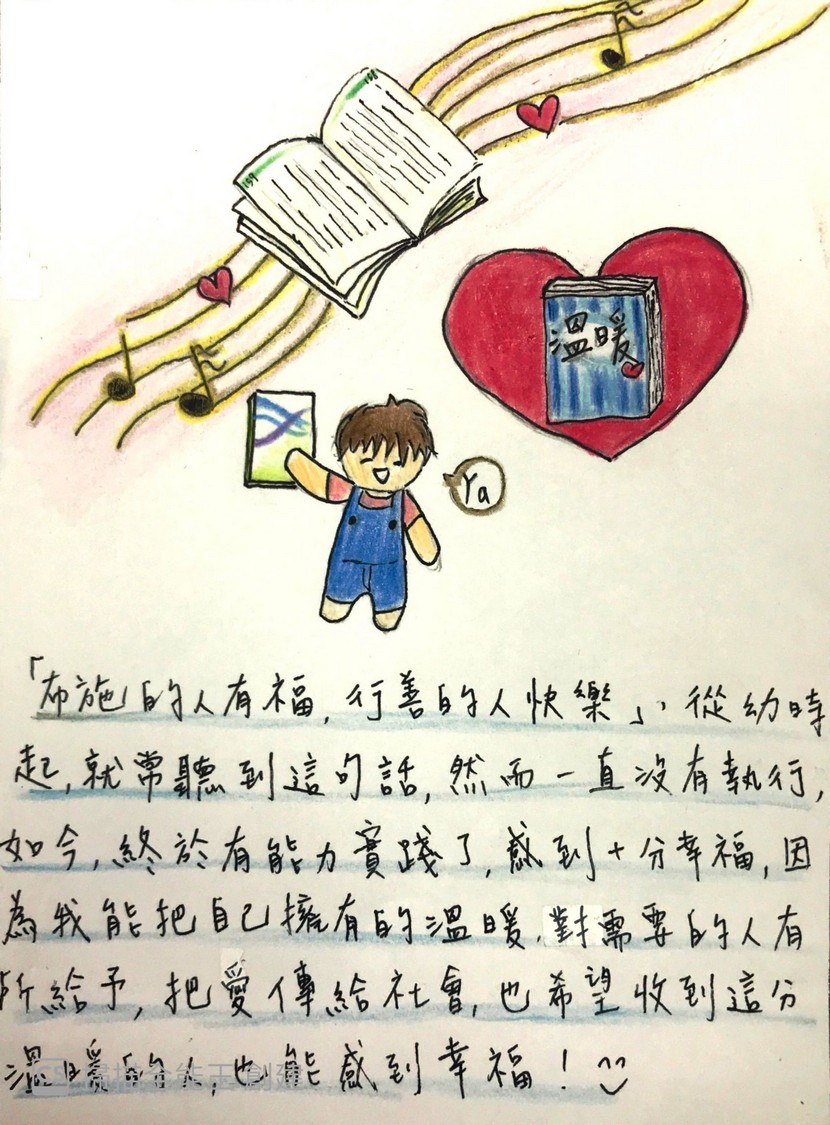 159
158
溫暖
Ya
「布施的人有福,行善的人快樂」,從幼時
起,就常聽到這句話,然而一直沒有執行,
如今,終於有能力實踐了,感到十分幸福,因
為我能把自己擁有的溫暖,對需要的人有
所給予,把愛傳給社會,也希望收到這分
溫暖的人,也能感到幸福!
CS 掃描全能王 創建